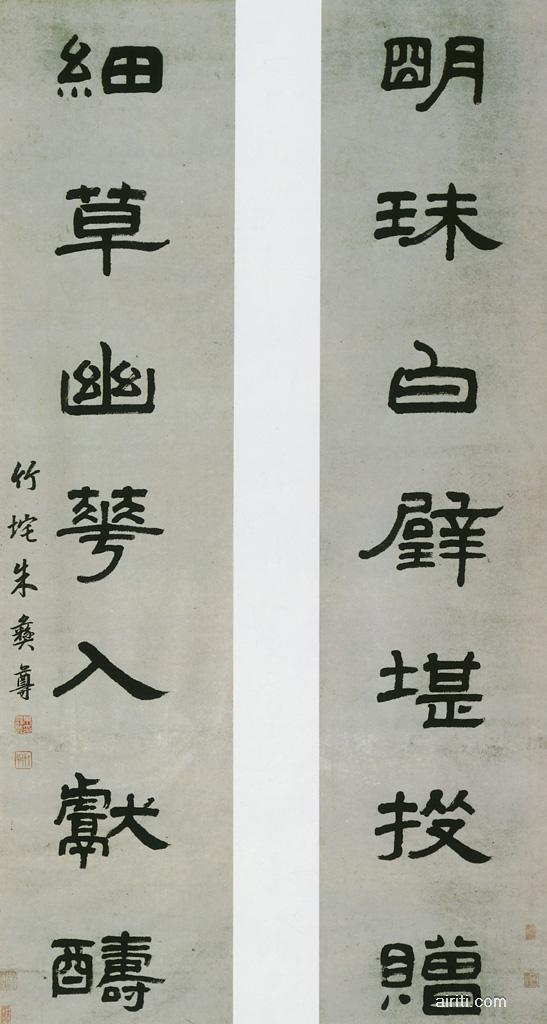 朙珠白璧堪投贈
細草幽華入獻醻
竹垞朱彝尊
airiti.com